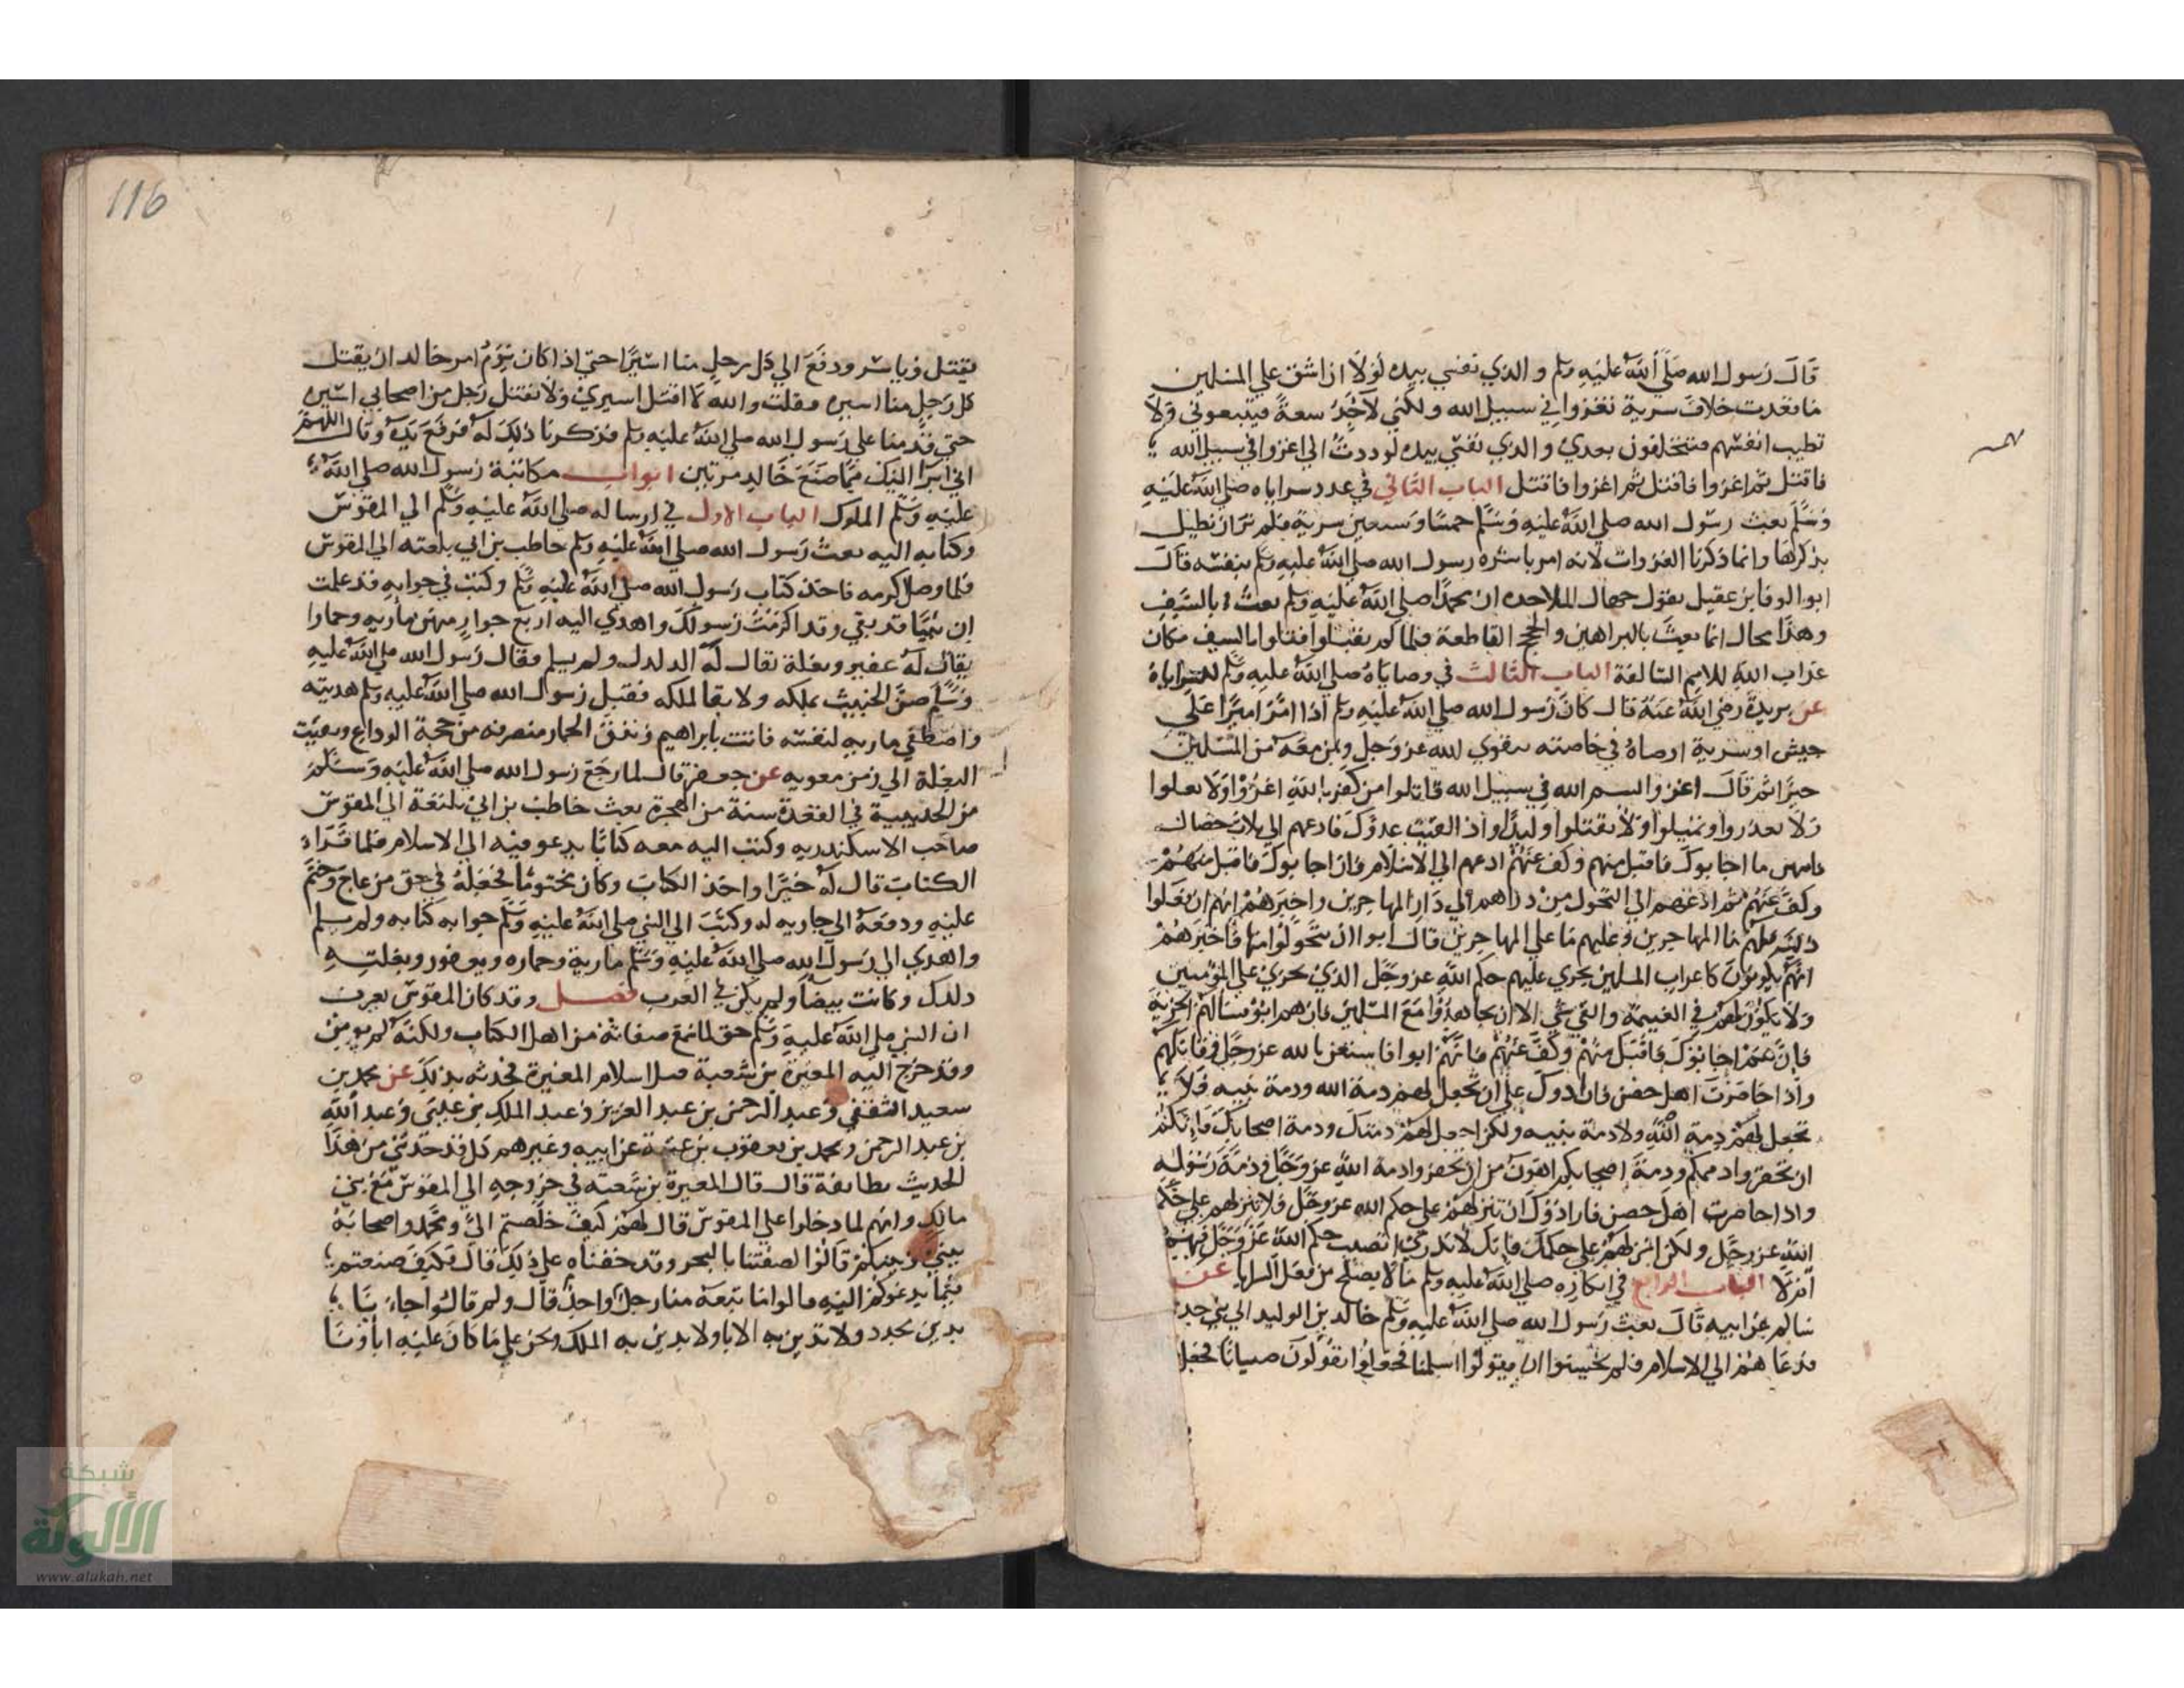 قال رسول الله صلى الله عليه وسلم والذي نفسي بيده لولا ان اشق علي المسلمين
ما قعدت خلاف سرية تغزوا في سبيل الله ولكني لا اجد سعة فيتبعوني ولا
تطيب انفسهم فيتخلفون بعدي والذي نفسي بيده لوددت اني اغزوا في سبيل الله
فاقتل ثم اغزوا فاقتل ثم اغزوا فاقتل الباب الثاني في عدد سراياه صلى الله عليه
وسلم بعث رسول الله صلى الله عليه وسلم خمسا وسبعين سرية فلم نر ان نطيل
بذكرها وانما ذكرنا الغزوات لانه امر باشره رسول الله صلى الله عليه وسلم بنفسه قال
ابو الوفا بن عقيل يقول جهال الملاحده ان محمدا صلى الله عليه وسلم بعث بالسيف
وهذا محال انما بعث بالبراهين والحجج القاطعة فلما لم يقبلوا قتلوا بالسيف مكان
عذاب الله للامم السالفة الباب الثالث في وصاياه صلى الله عليه وسلم لسراياه
عن بريدة رضي الله عنه قال كان رسول الله صلى الله عليه وسلم اذا امر اميرا علي
جيش او سرية اوصاه في خاصته بتقوي الله عز وجل وبمن معه من المسلمين
خيرا ثم قال اغزوا بسم الله في سبيل الله قاتلوا من كفر بالله اغزوا ولا تغلوا
ولا تغدروا وتمثلوا ولا تقتلوا وليدا واذا لقيت عدوك فادعهم الي ثلاث خصال
فايهن ما اجابوك فاقبل منهم وكف عنهم ادعهم الي الاسلام فان اجابوك فاقبل منهم
وكف عنهم ثم ادعهم الي التحول من دارهم الي دار المهاجرين واخبرهم انهم ان فعلوا
ذلك فلهم ما للمهاجرين وعليهم ما علي المهاجرين فان ابوا ان يتحولوا منها فاخبرهم
انهم يكونون كاعراب المسلمين يجري عليهم حكم الله عز وجل الذي يجري علي المؤمنين
ولا يكون لهم في الغنيمة والفي شي الا ان يجاهدوا مع المسلمين فان هم ابوا فسالهم الجزية
فان هم اجابوك فاقبل منهم وكف عنهم فان هم ابوا فاستعن بالله عز وجل وقاتلهم
واذا حاصرت اهل حصن فارادوك علي ان تجعل لهم ذمة الله وذمة نبيه فلا
تجعل لهم ذمة الله ولا ذمة نبيه ولكن اجعل لهم ذمتك وذمة اصحابك فانكم
ان تخفروا ذممكم وذمة اصحابكم اهون من ان تخفروا ذمة الله عز وجل وذمة رسوله
واذا حاصرت اهل حصن فارادوك ان تنزلهم علي حكم الله عز وجل فلا تنزلهم علي حكم
الله عز وجل ولكن انزلهم علي حكمك فانك لا تدري اتصيب حكم الله عز وجل فيهم
ام لا الباب الرابع في انكاره صلى الله عليه وسلم ما لا يصلح من فعل السرايا عن
سالم عن ابيه قال بعث رسول الله صلى الله عليه وسلم خالد بن الوليد الي بني
فدعاهم الي الاسلام فلم يحسنوا ان يقولوا اسلمنا فجعلوا يقولون صبانا فجعل
116
يقتل وياسر ودفع الي كل رجل منا اسيرا حتي اذا كان يوم امر خالد ان يقتل
كل رجل منا اسيره فقلت والله لا اقتل اسيري ولا يقتل رجل من اصحابي اسيره
حتي قدمنا علي رسول الله صلى الله عليه وسلم فذكرنا ذلك له فرفع يده وقال اللهم
اني ابرا اليك مما صنع خالد مرتين ابواب مكاتبة رسول الله صلى الله
عليه وسلم الملوك الباب الاول في ارساله صلى الله عليه وسلم الي المقوقس
وكتابه اليه بعث رسول الله صلى الله عليه وسلم حاطب بن ابي بلتعه الي المقوقس
فلما وصل اكرمه فاخذ كتاب رسول الله صلى الله عليه وسلم وكتب في جوابه قد علمت
ان نبيا قد بقي وقد اكرمت رسولك واهدي اليه اربع جوار منهن ماريه وحمارا
يقال له عفير وبغلة يقال له الدلدل ولم يسلم فقال رسول الله صلى الله عليه
وسلم ضن الخبيث بملكه ولا بقا لملكه فقبل رسول الله صلى الله عليه وسلم هديته
واصطفي ماريه لنفسه فاتت بابراهيم ونفق الحمار منصرفه من حجة الوداع وبقيت
البغلة الي زمن معويه عن جعفر قال لما رجع رسول الله صلى الله عليه وسلم
من الحديبية في القعدة سنة من الهجرة بعث حاطب بن ابي بلتعة الي المقوقس
صاحب الاسكندريه وكتب اليه معه كتابا يدعو فيه الي الاسلام فلما قراه
الكتاب قال له خيرا واخذ الكتاب وكان مختوما فجعله في حق من عاج وختم
عليه ودفعه الي جاريه له وكتب الي النبي صلى الله عليه وسلم جواب كتابه ولم يسلم
واهدي الي رسول الله صلى الله عليه وسلم مارية وحماره ويعفور وبغلته
دلدل وكانت بيضا ولم يكن في العرب فصل وقد كان المقوقس يعرف
ان النبي صلى الله عليه وسلم حق لما سمع صفاته من اهل الكتاب ولكنه لم يومن
وقد خرج اليه المغيرة بن شعبة قبل اسلام المغيرة فحدثه بذلك عن محمد بن
سعيد الثقفي وعبد الرحمن بن عبد العزيز وعبد الملك بن عيسى وعبد الله
بن عبد الرحمن ومحمد بن يعقوب بن عتبة عن ابيه وغيرهم كل قد حدثني من هذا
الحديث بطايفة قال قال المغيرة بن شعبه في خروجه الي المقوقس مع بني
مالك وانهم لما دخلوا علي المقوقس قال لهم كيف خلصتم الي ومحمد واصحابه
بيني وبينكم قالوا لصقنا بالبحر وقد خفناه علي ذلك قال فكيف صنعتم
فيما يدعوكم اليه قالوا ما تبعه منا رجل واحد قال ولم قالوا جاءنا
بدين مجدد ولا تدين به الابا ولا يدين به الملك ونحن علي ما كان عليه اباونا
شبكة
الألوكة
www.alukah.net